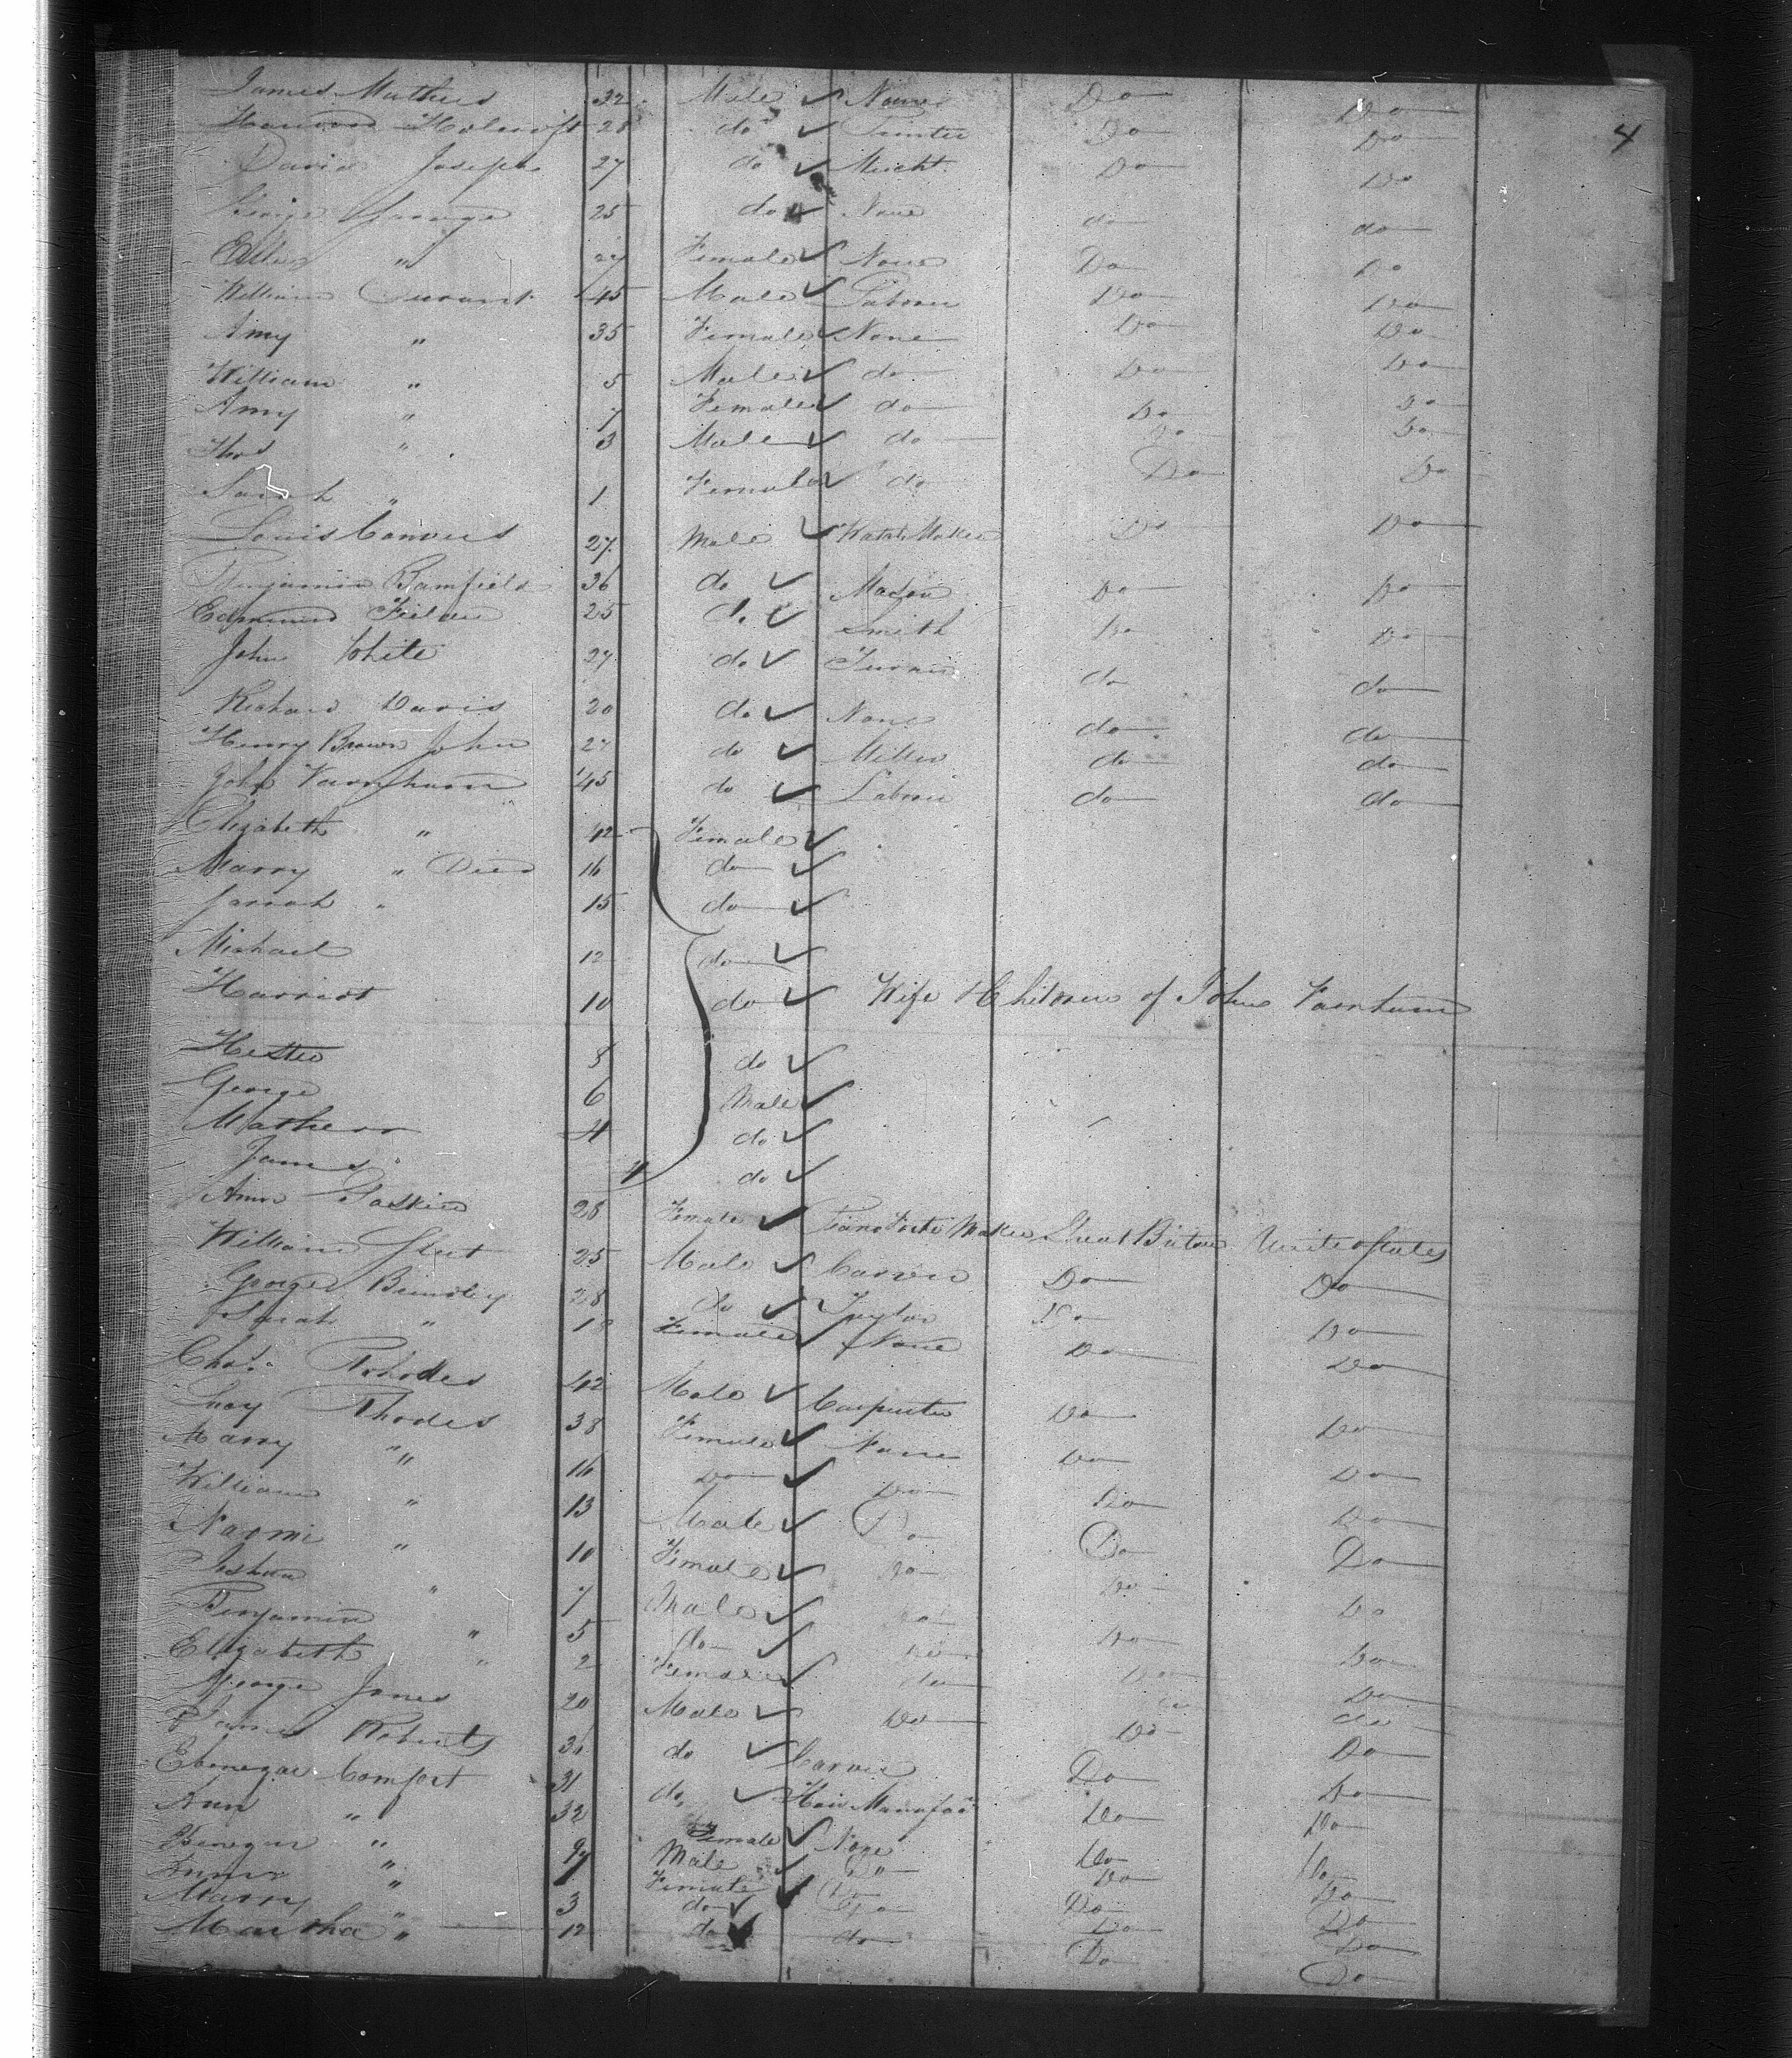 James Mathers 32 Male None Do Do
4
Holcroft 28 do Do Do
David Joseph 27 do Mercht. Do Do
George 25 do None do do
Ellen " 27 Female None Do Do
William Durant 45 Male Labourer Do Do
Amy " 35 Female None Do Do
William " 5 Male do Do Do
Amy " 7 Female do Do Do
Thos " 3 Male do Do Do
Sarah " 1 Female do Do Do
Louis Convers 27 Male Watch Maker Do Do
Benjamin Bamfield 36 do Mason Do Do
Edmund 25 do Smith Do Do
John White 27 do do do
Richard Davis 20 do None do do
Henry Brown John 27 do Miller do do
John Varnham 45 do Labourer do do
Elizabeth " 42 Female
Marry " Died 16 do
Sarah " 15 do
Michael 12 do
Harriot 10 do Wife & Children of John Varnham
Hester 8 do
George 6 Male
Mathew 4 do
James do
Ann Gaskin 28 Female Piano Forte Maker Great Britain United States
William 25 Male Carver Do Do
George Brindley 28 do Taylor Do Do
Sarah " 18 Female None Do Do
Chas. Rhodes 42 Male Carpenter Do Do
Lucy Rhodes 38 Female None Do Do
Marry " 16 Do Do Do Do
William " 13 Male Do Do Do
Naomi " 10 Female Do Do Do
Joshua " 7 Male Do Do Do
Benjamin " 5 do Do Do Do
Elizabeth " 2 Female do Do Do
George Jones 20 Male Do Do do
James Roberts 36 do Carver Do Do
Ebenezar Comfort 31 do Hair Manufac Do Do
Ann " 32 Female None Do Do
Ebenezar " 9 Male Do Do Do
" 7 Female Do Do Do
Marry " 3 do Do Do
Martha " 12 do do Do Do